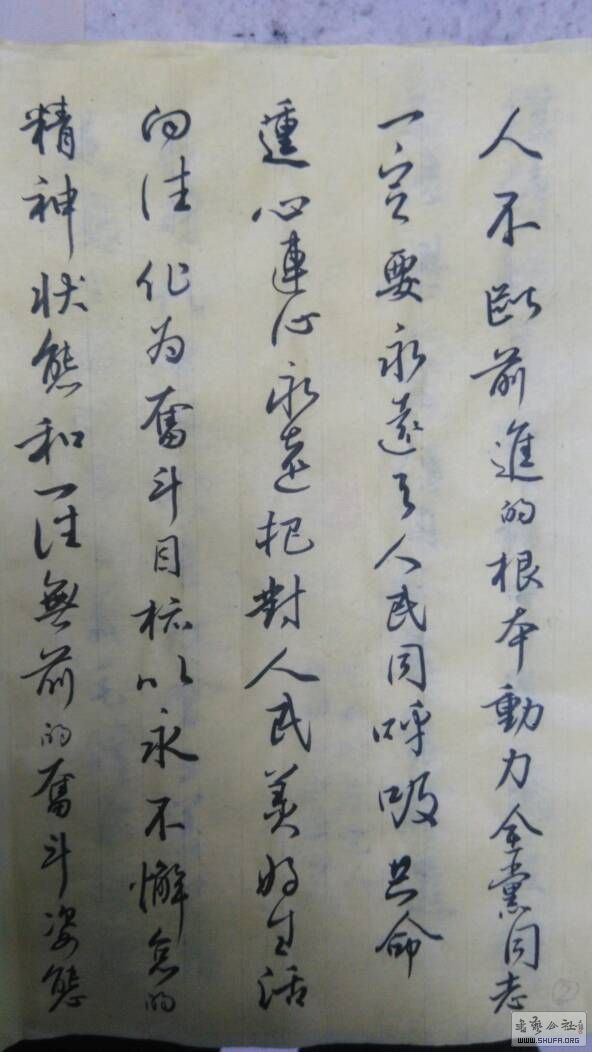 人不斷前進的根本動力全黨同志
一定要永遠与人民同呼吸共命
運心連心永遠把對人民美好生活
向往作为奮斗目标以永不懈怠的
精神狀態和一往無前的奮斗姿態
②
书艺公社
WWW.SHUFA.ORG